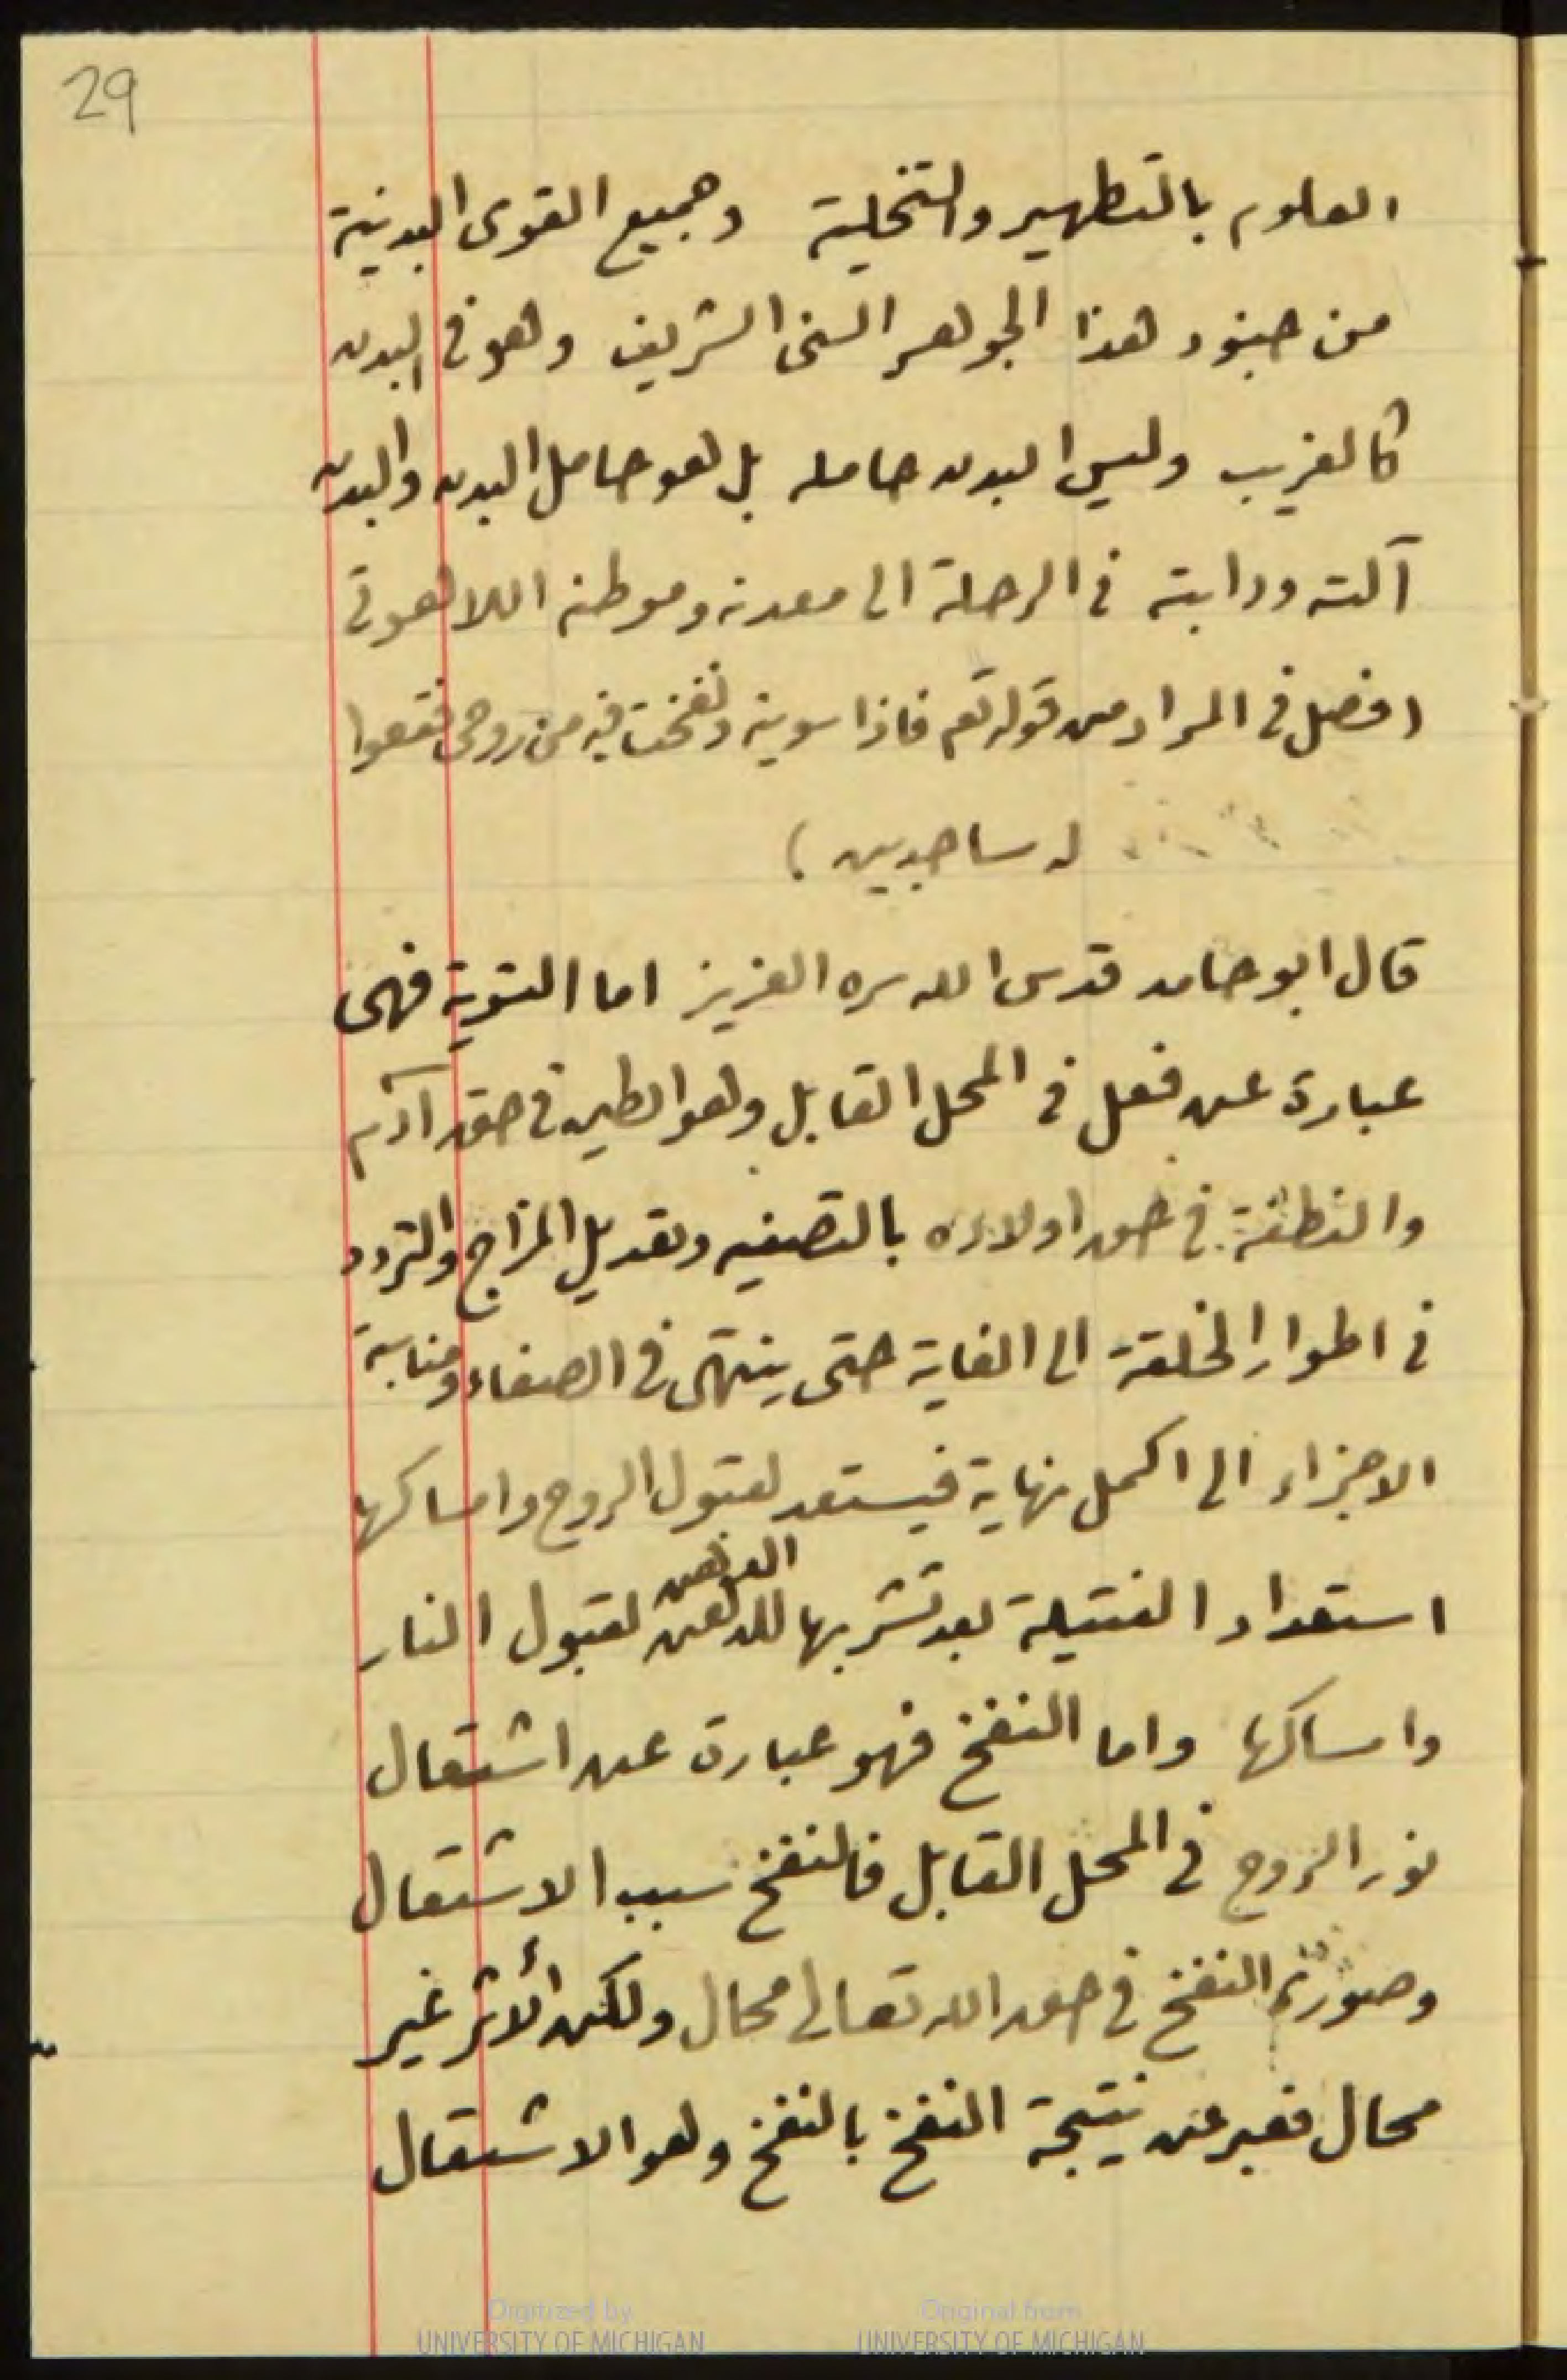 29
العلوم بالتطهير والتخلية وجميع القوى البدنية
من جنود هذا الجوهر السنى الشريف وهو فى البدن
كالغريب وليس البدن حامله بل هو حامل البدن والبدن
آلته ودابته فى الرحلة الى معدنه وموطنه اللاهوتى
(فصل فى المراد من قوله تعم فاذا سويته ونفخت فيه من روحى فقعوا
له ساجدين)
قال ابو حامد قدس الله سره العزيز اما التسوية فهى
عبارة عن فعل فى المحل القابل وهو الطين فى حق آدم
والنطفة فى حق اولاده بالتصفيه وتعديل المزاج والتردد
فى اطوار الخلقة الى الغاية حتى ينتهى فى الصفاء ومناسبة
الاجزاء الى اكمل نهاية فيستعد لقبول الروح وامساكها
الدهن
استعداد الفتيلة بعد تشربها للدهن لقبول النار
وامساكها واما النفخ فهو عبارة عن اشتعال
نور الروح فى المحل القابل فالنفخ سبب الاشتعال
وصورة النفخ فى حق الله تعالى محال ولكن الأثر غير
محال فعبر عن نتيجة النفخ بالنفخ وهو الاشتعال
Digitized by
UNIVERSITY OF MICHIGAN
Original from
UNIVERSITY OF MICHIGAN